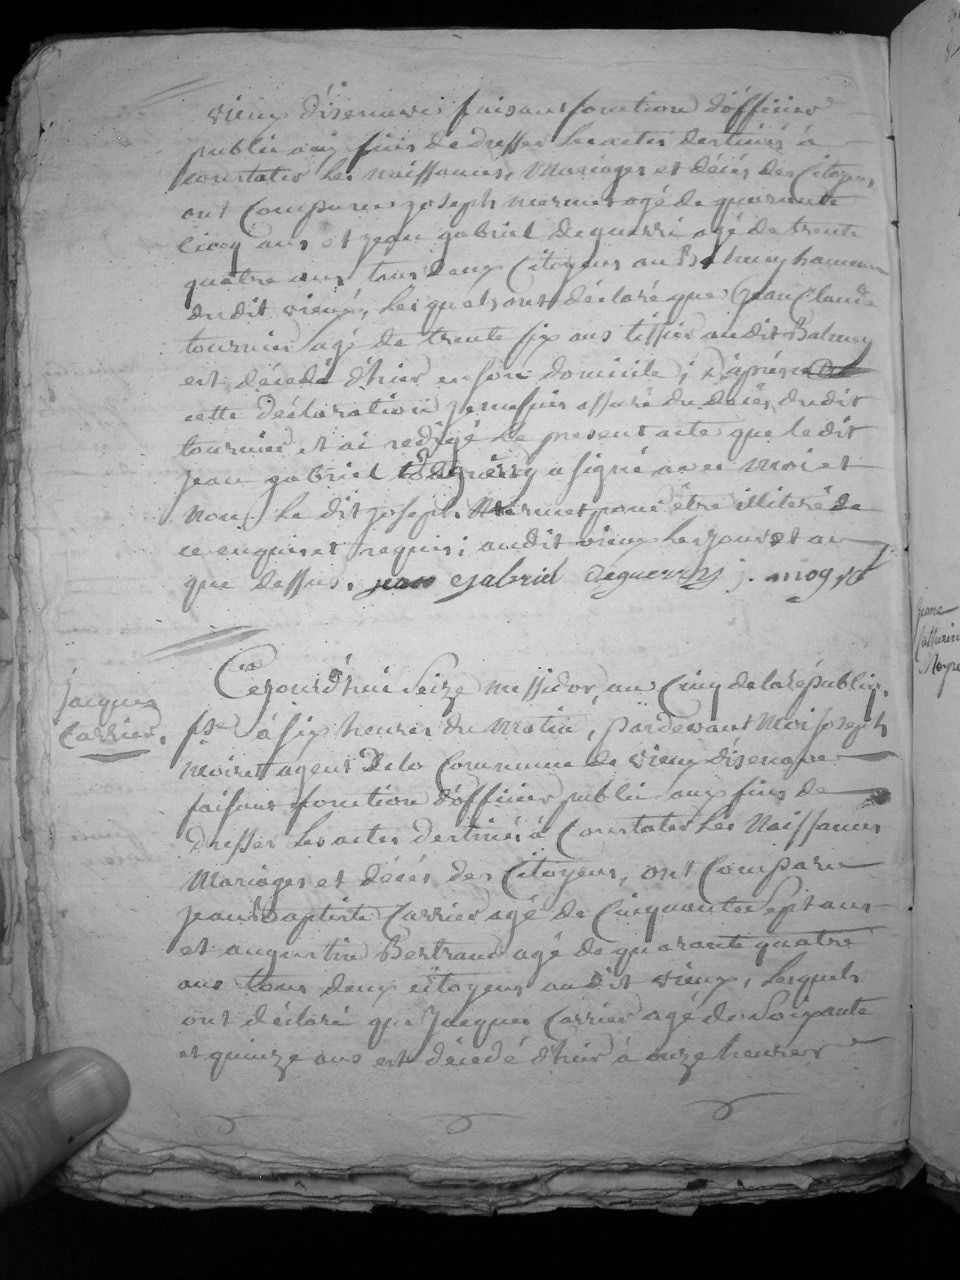 vieux d'isenave faisant fonction d'officier
public aux fins de dresser les actes destinés à
constater les naissances, Mariages et décés des Citoyens
ont Comparu joseph mermet agé de quarante
cinq ans et jean gabriel deguerri agé de trente
quatre ans tous deux Citoyens au Balmey hameau
du dit vieux, lesquels ont déclaré que jean Claude
tournier agé de trente six ans tissier au dit Balmey
est décedé d'hier en son domicile ; d'après
cette déclaration je me suis assuré du décés du dit
tournier et ai redigé le present acte que le dit
jean gabriel deguerry a signé avec moi et
non le dit joseph Mermet pour être illiteré de
ce enquis et requis ; au dit vieux les jour et an
que dessus. jean gabriel deguerry j. moyret
jacques
Carrier.
Cejourd'hui Seize messidor an Cinq de la républiq.
fse à six heures du matin, pardevant Moi joseph
moiret agent de la Commune de vieux d'isenave
faisant fonction d'officier public aux fins de
dresser les actes destinés à Constater les Naissances
Mariages et décés des Citoyens, ont Comparu
jean Baptiste Carrier agé de Cinquante Sept ans
et augustin Bertrand agé de quarante quatre
ans tous deux citoyens au dit vieux, lesquels
ont déclaré que Jacques Carrier agé de Soixante
et quinze ans est décedé d'hier à onze heures
jeane